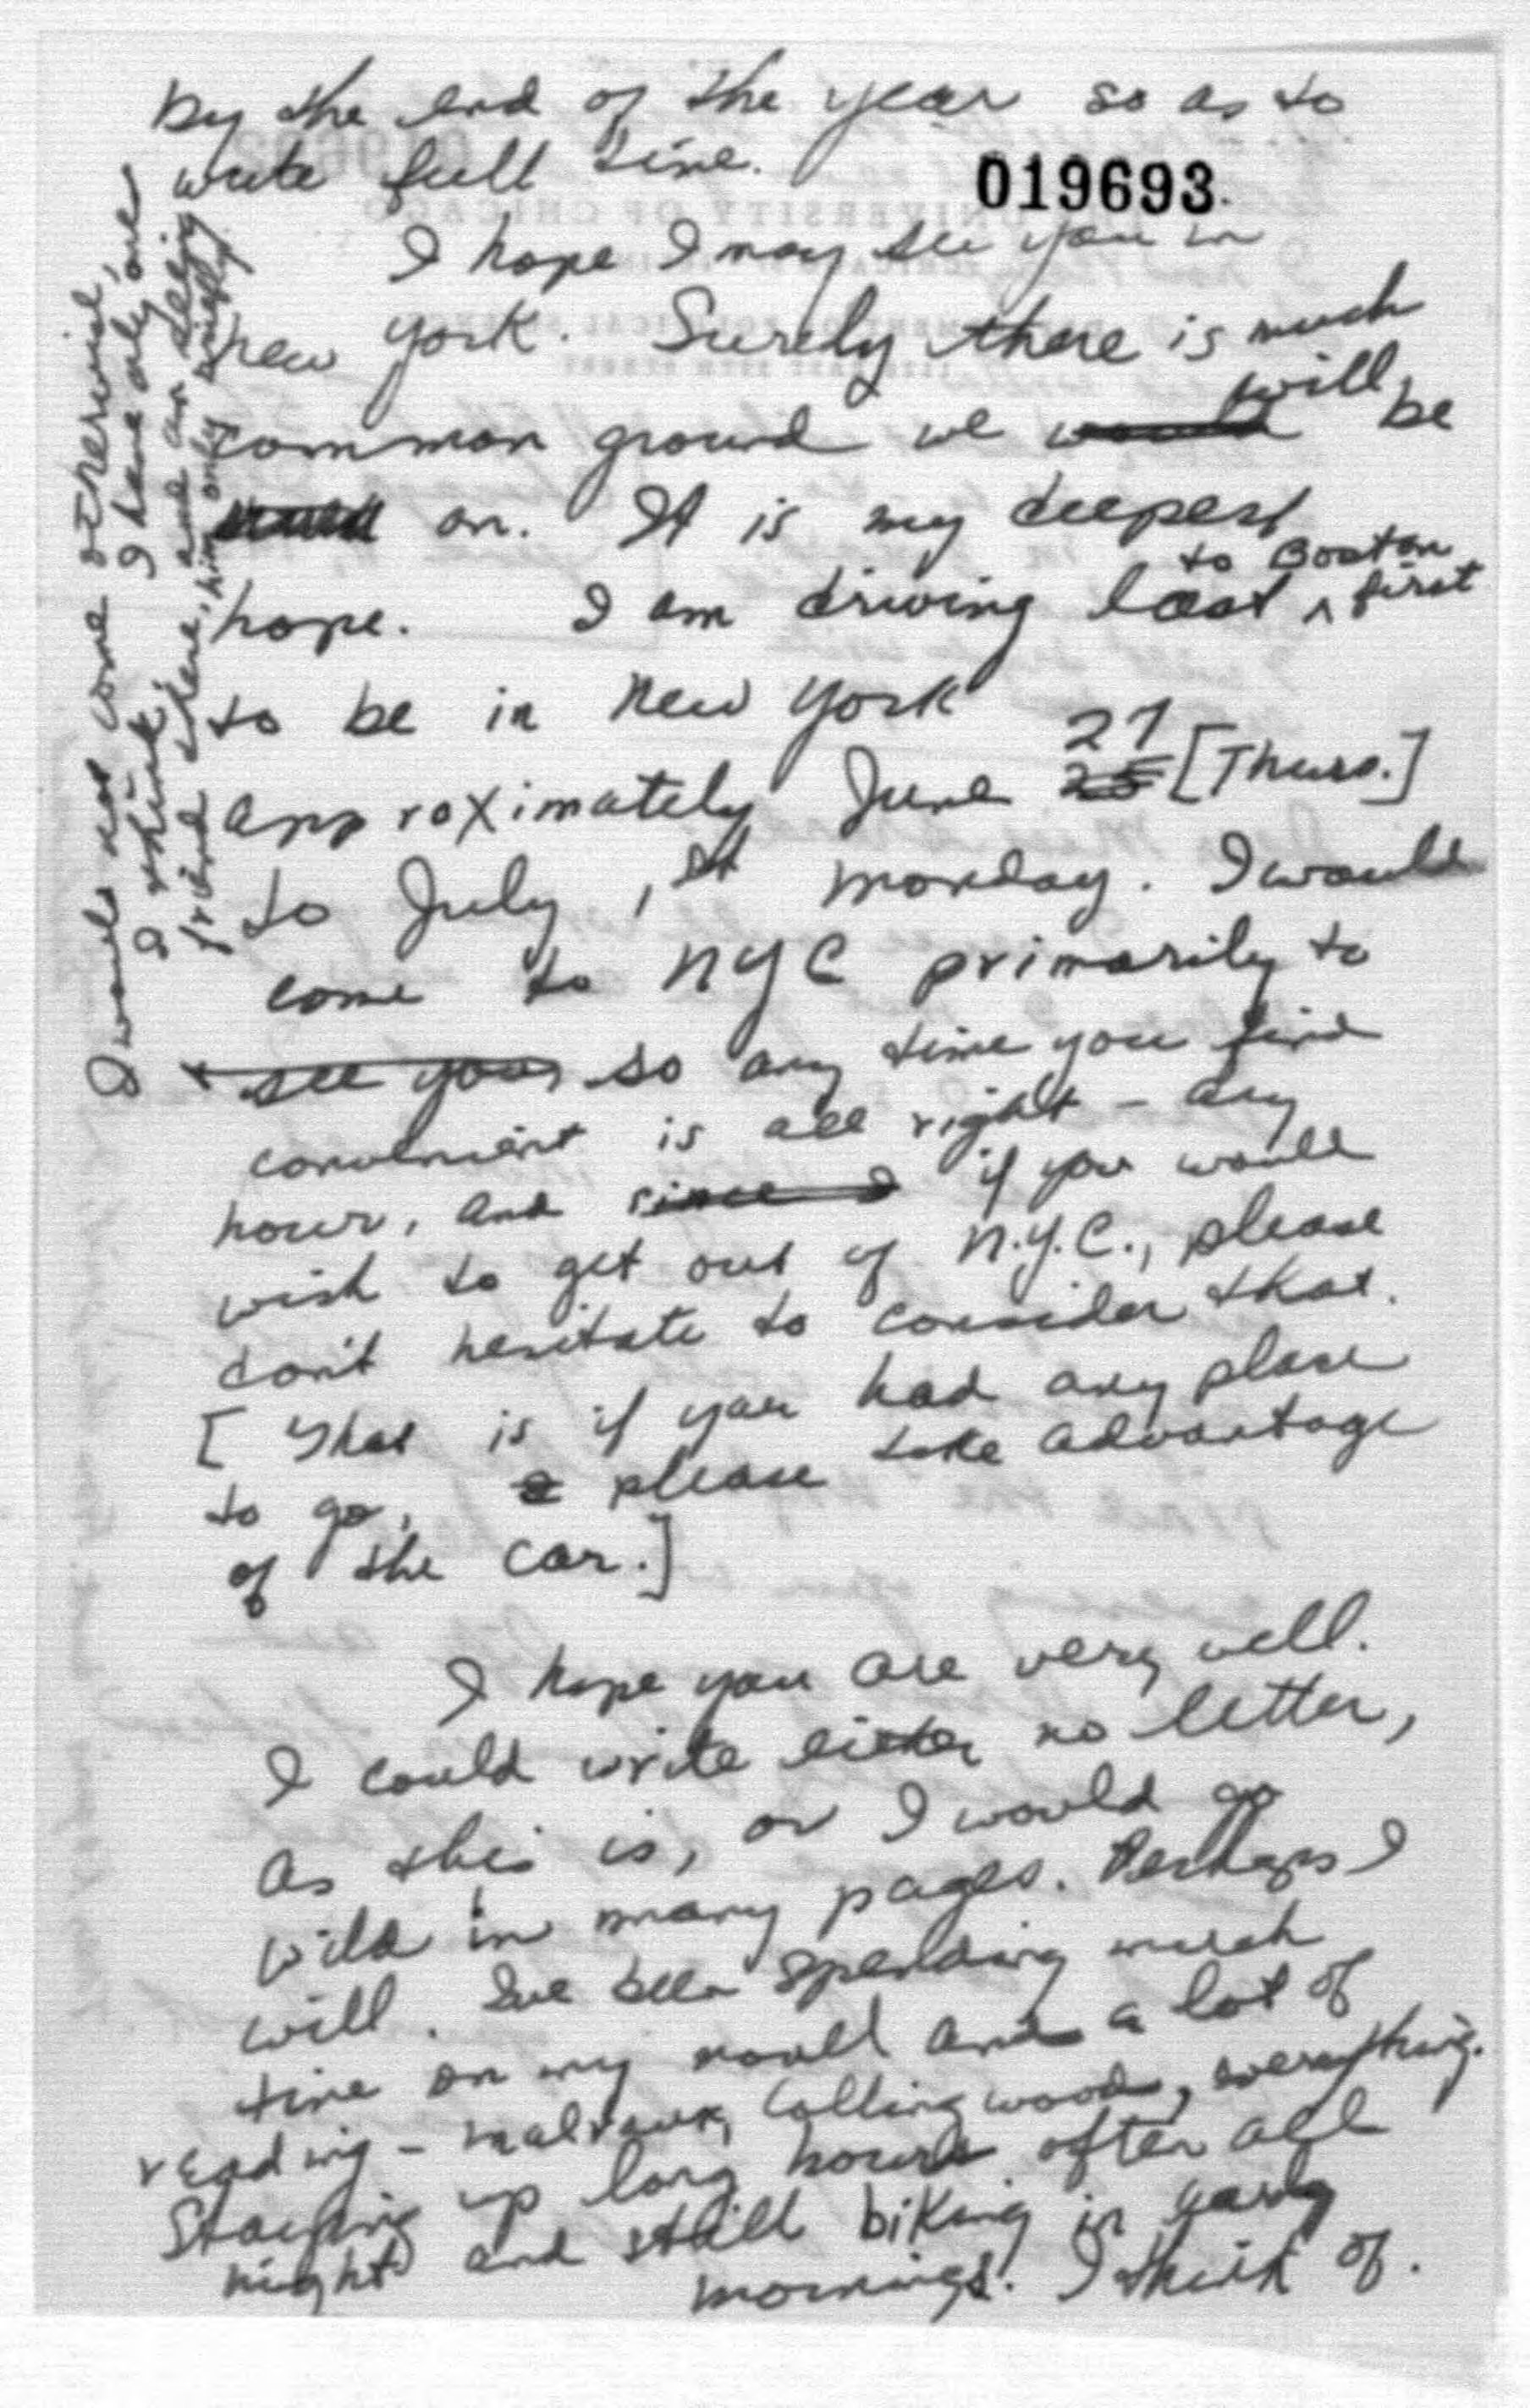 by the end of the year so as to
write full time.
019693
I hope I may see you in
New York. Surely there is much
common ground we will be
on. It is my deepest
hope. I am driving East to Boston first
to be in New York
approximately June 27 [Thurs.]
to July 1st Monday. I would
come to NYC primarily to
see you, so any time you find
convenient is all right – any
hour, and since I if you would
wish to get out of N.Y.C., please
don't hesitate to consider that.
[That is if you had any place
to go, please take advantage
of the car.]
I hope you are very well.
I could write either no letter,
as this is, or I would go
wild in many pages. Perhaps I
will. I've been spending much
time on my novel and a lot of
reading – Malraux, Collingwood, everything.
Staying up long hours often all
night and still biking in early
mornings. I think of.
I would not come otherwise,
I think. I have only one
friend there, and am seeing
him only briefly